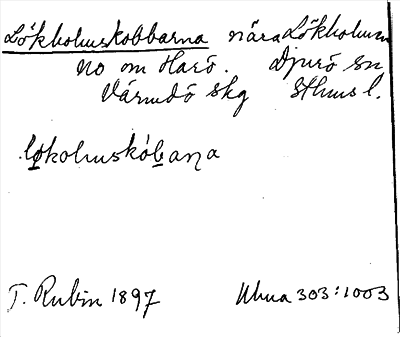 Lökholmskobbarna nära Lökholmen
NO om Harö. Djurö sn
Värmdö skg Sthms l.
løkolmskóbaṇa
T. Rubin 1897 Uhua 303:1003